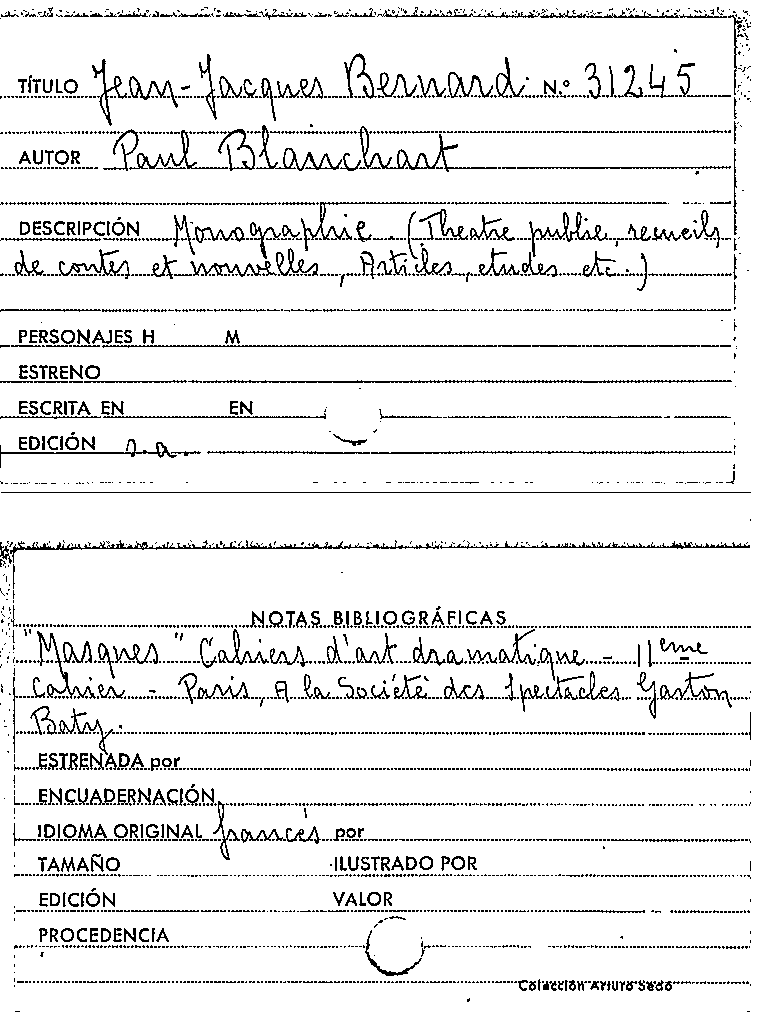 TÍTULO Jean-Jacques Bernard. N.º 31245
AUTOR Paul Blanchart
DESCRIPCIÓN Monographie. (Theatre publie, recueils
de contes et nouvelles, Articles, etudes etc.)
PERSONAJES H M
ESTRENO
ESCRITA EN EN
EDICIÓN s.a.
NOTAS BIBLIOGRÁFICAS
"Masques" Cahiers d'art dramatique - 11eme
cahier - Paris, A la Société des Spectacles Gaston
Baty.
ESTRENADA por
ENCUADERNACIÓN
IDIOMA ORIGINAL francés por
TAMAÑO ILUSTRADO POR
EDICIÓN VALOR
PROCEDENCIA
Colección Arturo Sedó